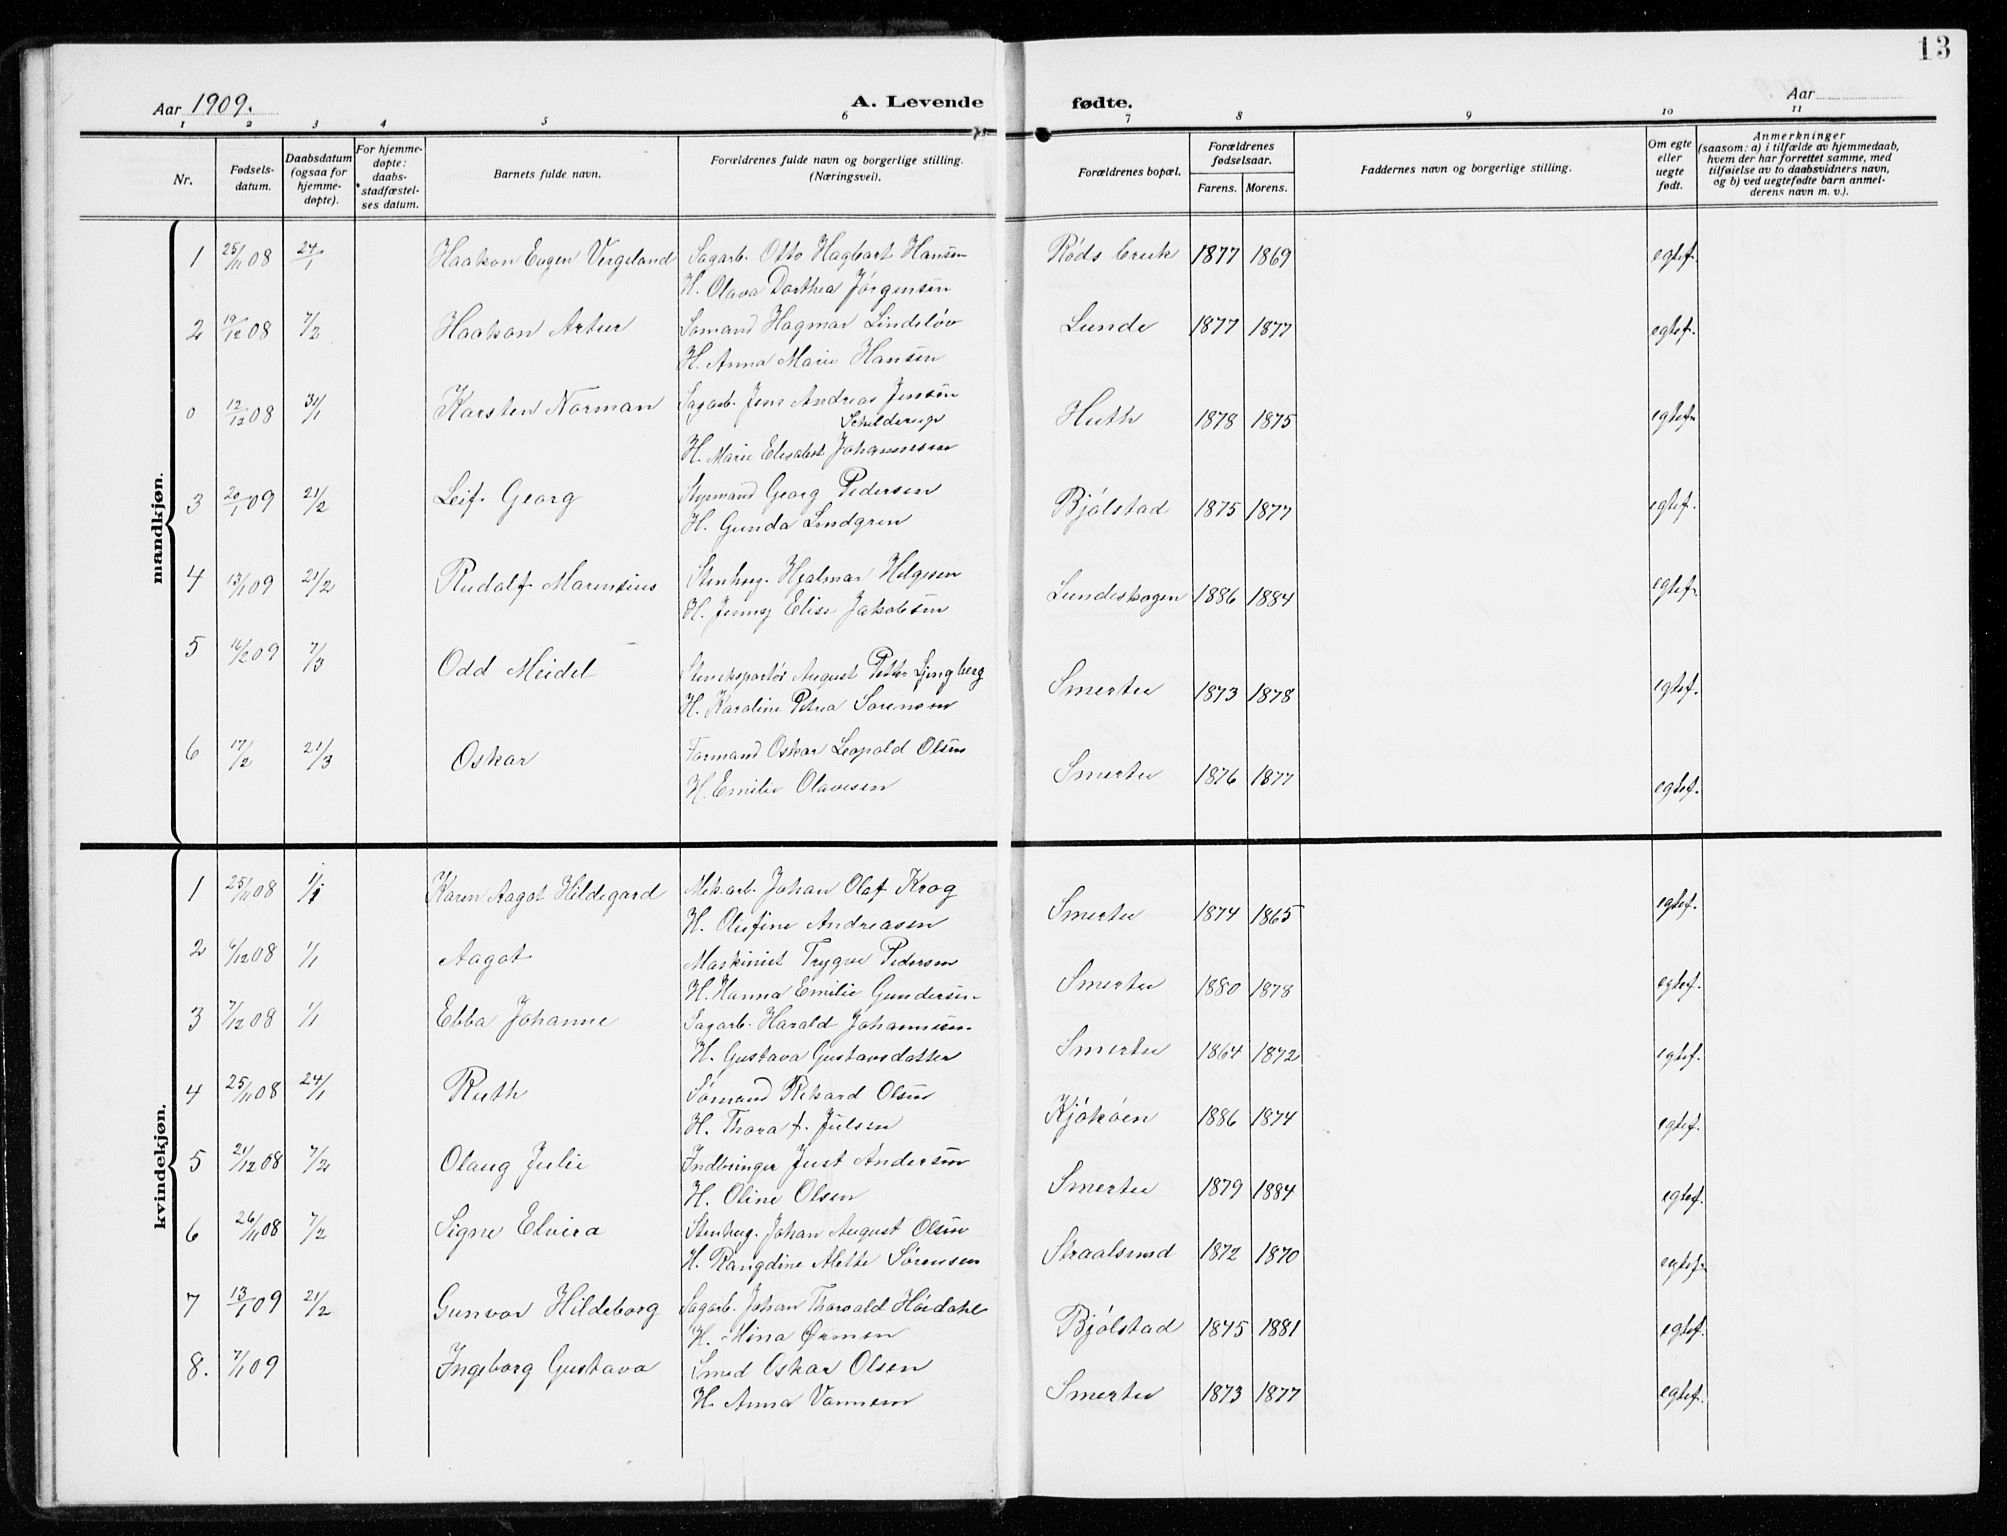 13
Aar 1909. A. Levende fødte. Aar
1 2 3 4 5 6 7 8 9 10 11
Nr.
Fødsels-
datum.
Daabsdatum
(ogsaa for
hjemme-
døpte).
For hjemme-
døpte:
daabs-
stadfæstel-
ses datum.
Barnets fulde navn.
Forældrenes fulde navn og borgerlige stilling.
(Næringsvei).
Forældrenes bopæl.
Forældrenes
fødselsaar.
Farens. Morens.
Faddernes navn og borgerlige stilling.
Om egte
eller
uegte
født.
Anmerkninger
(saasom: a) i tilfælde av hjemmedaab,
hvem der har forrettet samme, med
tilføielse av to daabsvidners navn,
og b) ved uegtefødte barn anmel-
derens navn m. v.).
mandkjøn.
1 25/11 08 24/1 Haakon Eugen Vergeland Sagarb. Otto Hagbart Hansen Røds bruk 1877 1869 egtef.
H. Olava Dorthea Jørgensen
2 19/12 08 7/2 Haakon Artur Sømand Hagmar Lindeløv Lunde 1877 1877 egtef.
H. Anna Marie Hansen
0 12/12 08 31/1 Karsten Norman Sagarb. Jens Andreas Jensen Huth 1878 1875 egtef.
Schilderup
H. Marie Elisabet Johannesen
3 20/1 09 21/2 Leif Georg Styrmand Georg Pedersen Bjølstad 1875 1877 egtef.
H. Gunda Lindgren
4 13/1 09 21/2 Rudolf Marensius Stenhug. Hjalmar Helgesen Lundeskogen 1886 1884 egtef.
H. Jenny Elise Jakobsen
5 16/2 09 7/3 Odd Meidel Steneksportør August Petter Ljungberg Smertu 1873 1878 egtef.
H. Karoline Petrea Sørensen
6 17/2 21/3 Oskar Formand Oskar Leopold Olsen Smertu 1876 1877 egtef.
H. Emilie Olavesen
kvindekjøn.
1 25/11 08 1/1 Karen Aagot Hildegard Mek.arb. Johan Olaf Krog Smertu 1874 1865 egtef.
H. Olefine Andreasen
2 6/12 08 1/1 Aagot Maskinist Trygve Pedersen Smertu 1880 1878 egtef.
H. Hanna Emilie Gundersen
3 7/12 08 1/1 Ebba Johanne Sagarb. Harald Johannesen Smertu 1864 1872 egtef.
H. Gustava Gustavsdatter
4 25/11 08 24/1 Ruth Sømand Rikard Olsen Kjøkøen 1886 1874 egtef.
H. Thora f. Julsen
5 21/12 08 7/2 Olaug Julie Indbringer Just Andersen Smertu 1879 1884 egtef.
H. Oline Olsen
6 26/11 08 7/2 Signe Elvira Stenhug. Johan August Olsen Straalsund 1872 1870 egtef.
H. Rangdine Alette Sørensen
7 13/1 09 21/2 Gunvor Hildeborg Sagarb. Johan Thorvald Hørdahl Bjølstad 1875 1881 egtef.
H. Mina Ørmen
8. 7/1 09 Ingeborg Gustava Smed Oskar Olsen Smertu 1873 1877 egtef.
H. Anna